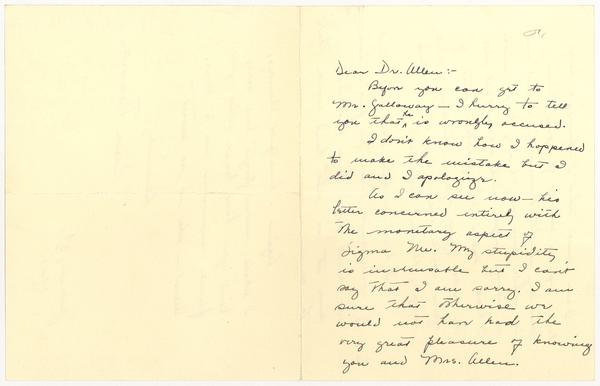 Dear Dr. Allen:-
Before you can get to
Mr. Galloway - I hurry to tell
you that he is wrongly accused.
I don't know how I happened
to make the mistake but I
did and I apologize.
As I can see now - his
letter concerned entirely with
the monetary aspect of
Sigma Nu. My stupidity
is inexcusable but I can't
say that I am sorry. I am
sure that otherwise we
would not have had the
very great pleasure of knowing
you and Mrs. Allen.